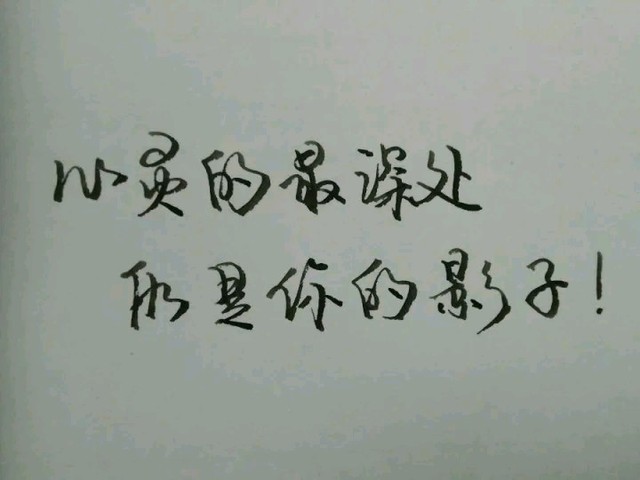 心灵的最深处
仍是你的影子！